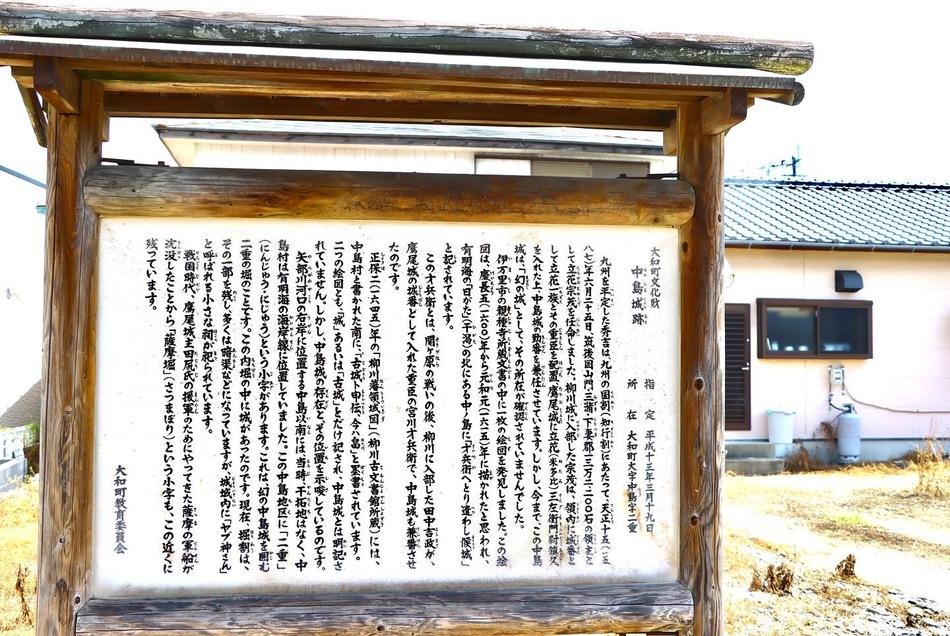 大和町文化財
中島城跡
指定 平成十三年三月十九日
所在 大和町大字中島字二重
九州を平定した秀吉は、九州の国割(知行割)にあたって、天正十五(一五
八七)年六月二十五日、筑後国小門三瀦・下妻郡十三万二二〇〇石の領主と
して立花宗茂を任命しました。柳川城に入部した宗茂は、領内に城番と
して立花一族とその重臣を配置、鷹尾城に立花(米多比)三左衛門尉鎮久
を入れた上、中島城の勤番を兼任させています。しかし、今まで、この中島
城は、「幻の城」として、その所在が確認されていませんでした。
伊万里市の親種寺所蔵文書の中に一枚の絵図を発見しました。この絵
図は、慶長五(一六〇〇)年から元和元(一六一五)年に描かれたと思われ、
有明海の「日がた」(干潟)の北にある中ノ島に「才兵衛へとり遣わし候城」
と記されています。
この才兵衛とは、関ヶ原の戦いの後、柳川に入部した田中吉政が、
鷹尾城の城番として入れた重臣の宮川才兵衛で、中島城も兼番させ
たのです。
正保二(一六四五)年の「柳川藩領域図」(柳川古文書館所蔵)には、
中島村と書かれた南に、「古城ト申伝、今ハ畠」と墨書されています。
二つの絵図とも「城」あるいは「古城」とだけ記され、中島城とは明記さ
れていません。しかし、中島城の存在と、その位置を示唆しているのです。
矢部川河口の右岸に位置する中島以南には、当時、干拓地はなく、中
島村は有明海の海岸線に位置していました。この中島地区に「二重」
(にんじゅう・にじゅう)という小字があります。これは、幻の中島城を囲む
二重の堀のことです。この内堀の中に城があったのです。現在、掘割は、
その一部を残し、多くは暗渠などになっていますが、城域内に「ヤブ神さん」
と呼ばれる小さな祠が祀られています。
戦国時代、鷹尾城主田尻氏の援軍のためにやってきた薩摩の軍船が
沈没したことから「薩摩堀」(さつまぼり)という小字も、この近くに
残っています。
大和町教育委員会